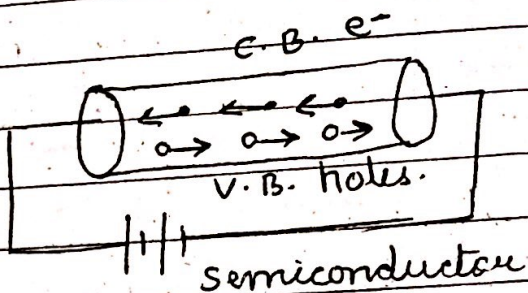 C.B. e-
V.B. holes.
semiconductor